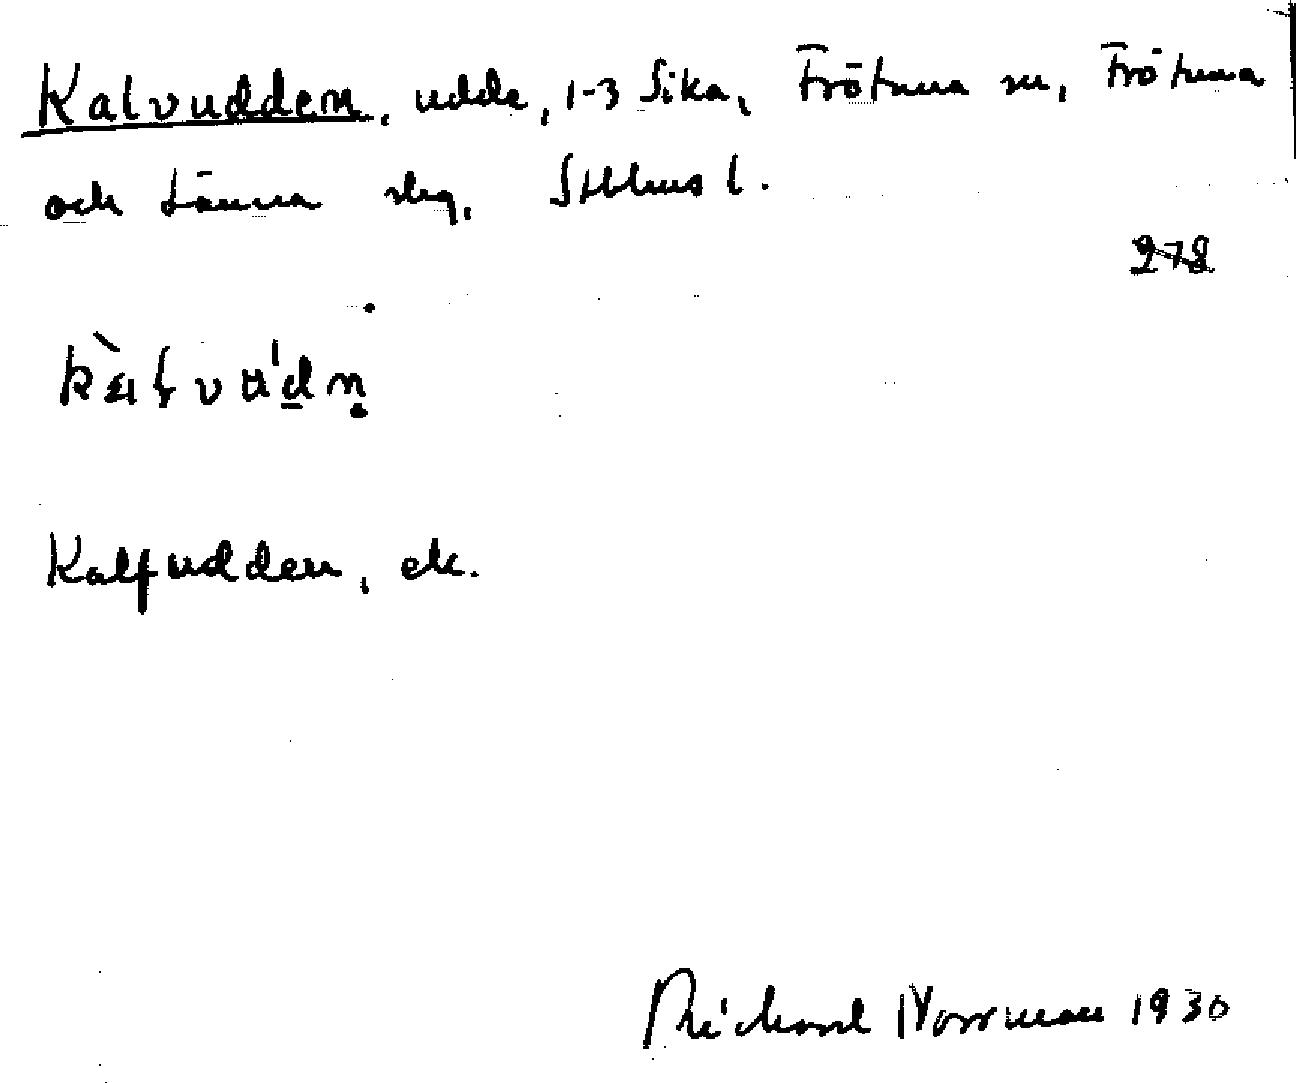 Kalvudden, udde, 1-3 Sika, Frötuna sn, Frötuna
och Länna slg, Sthlms l.
278
Kalfudden, ek.
Richard Norrman 1930